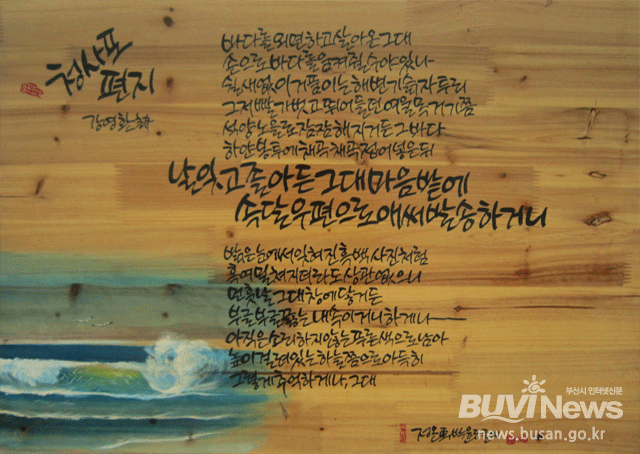 청사포
편지
강영환 詩
바다를 외면하고 살아온 그대
손으로 바다를 움켜쥘 수야 있나
쉴 새 없이 거품 이는 해변 기슭 자투리
그저 빨가벗고 뛰어들던 여울목 거기쯤
석양 노을로 잠잠해지거든 그 바다
하얀 봉투에 채곡채곡 접어 넣은 뒤
날 잊고 졸아든 그대 마음밭에
속달우편으로 애써 발송하거니
밝은 눈에서 잊혀진 흑백사진처럼
혹여 밀쳐지더라도 상관없으니
먼 훗날 그대 창에 닿거든
부글부글 끓는 내 속이거니 하게나
아직은 소리하지 않는 푸른색으로 남아
높이 걸려있는 하늘쯤으로 아득히
그렇게 추억하게나, 그대
부산시 인터넷신문
BUVI News
news.busan.go.kr